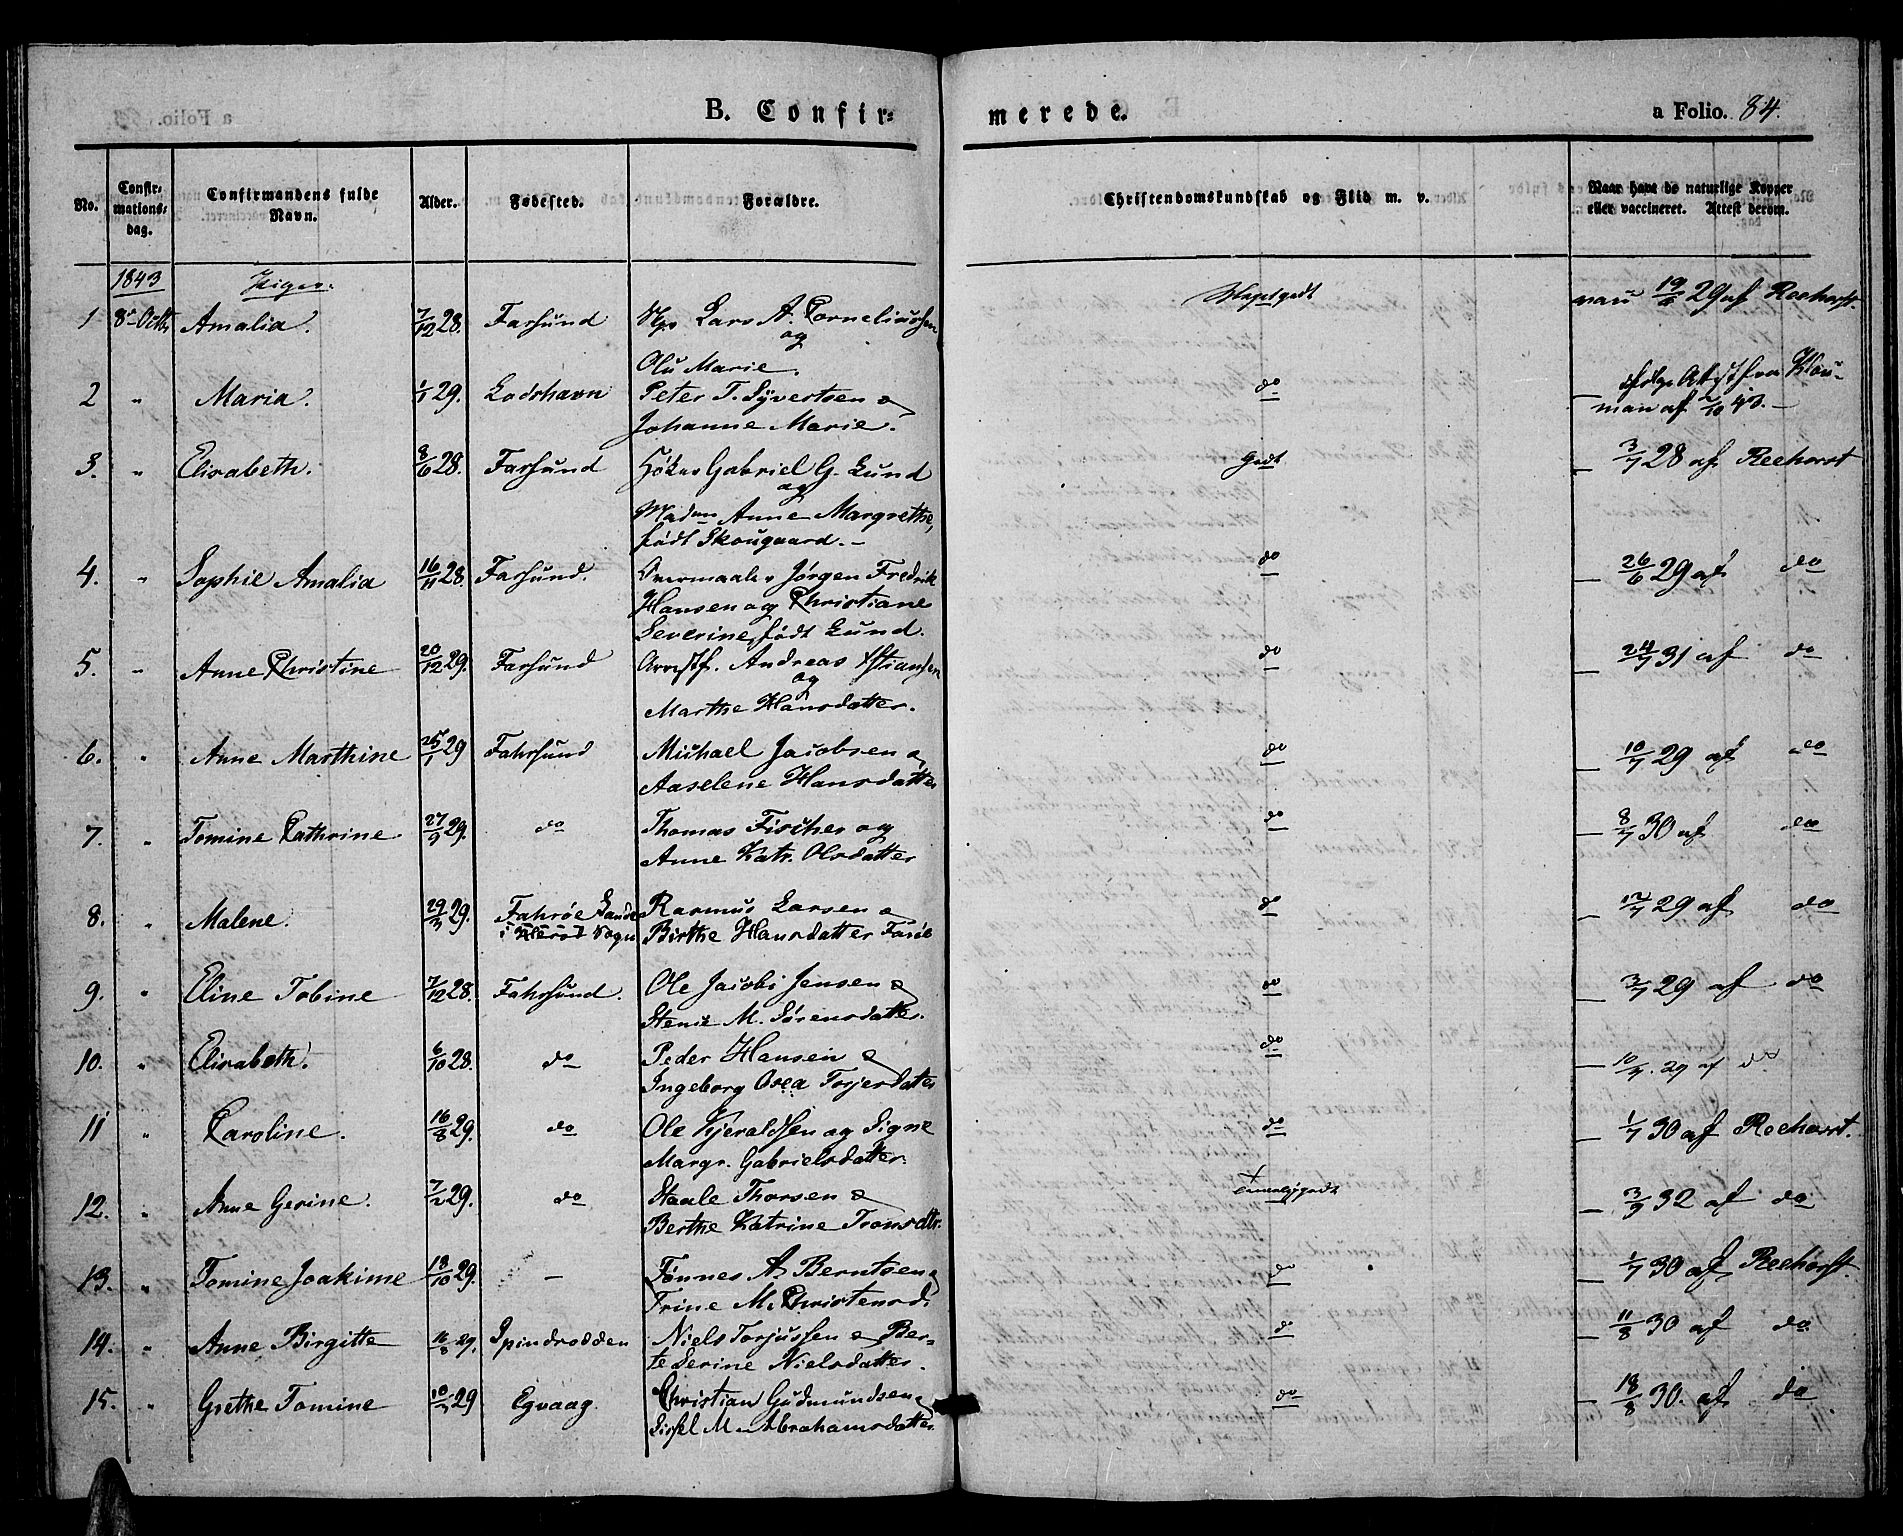 B. Confir= merede.
a Folio. 84.
No. Confir-mations-dag. Confirmandens fulde Navn. Alder. Fødested. Forældre. Christendomskundskab og Flid m. v. Naar havt de naturlige Kopper eller vaccineret. Attest derom.
1843 Piger.
1 8de Octbr Amalia. 7/12 28. Farsund Lars A. Corneliussen og Meget godt vacc 19/6 29 af Reehorst.
Olu Marie.
2 " Maria. 1/1 29. Lodshavn Peter T. Syvertsen & do ifølge Attest fra Klou-
Johanne Marie. man af 2/10 43.
3. " Elisabeth. 8/6 28. Farsund Høker Gabriel G. Lund og Godt 3/7 28 af Reehorst
Madm Anne Margrethe,
født Skougaard.
4. " Sophie Amalia 16/11 28. Farsund. Jørgen Fredrik do 26/6 29 af do
Hansen og Christiane
Severine, født Lund.
5. " Anne Christine 20/12 29. Farsund Andreas Xstiansen og do 24/7 31 af do
Marthe Hansdatter.
6. " Anne Marthine 25/1 29 Fahrsund Michael Jacobsen & do 10/7 29 af do
Aaselene Hansdatter
7. " Tomine Cathrine 27/9 29. do Thomas Fischer og do 8/7 30 af do
Anne Katr. Olsdatter
8. " Malene. 29/3 29. Fahrøe Lande Rasmus Larsen & do 12/7 29 af do
i Herød Sogn Birthe Hansdatter Farøe
9. " Eline Tobine 7/12 28. Fahrsund. Ole Jacobs Jensen & do 3/7 29 af do
Stenie M. Sørensdatter.
10. " Elisabeth. 6/10 28. do Peder Hansen & do 10/7. 29 af do
Ingeborg Osea Torjersdatter
11 " Caroline. 16/8 29. do Ole Kjeraldssen og Signe do 1/7 30 af Reehorst.
Margr. Gabrielsdatter.
12. " Anne Gerine. 7/2 29. do Staale Thorsen & Temmelig godt 3/9 32 af do
Berthe Katrine Tronsdtr.
13. " Tomine Joakime 18/10 29. — Tønnes A. Berntsen & do 1/7 30 af Reehorst.
Trine M. Christensd.
14. " Anne Birgitte 16/8 29. Spindrodden Niels Torjussen & Ber- do 11/8 30 af do.
te Serine Nielsdatter.
15. " Grethe Tomine 10/3 29 Egvaag. Christian Gudmundsen & do 18/8 30. af do
Sissel M. Abrahamsdatter.